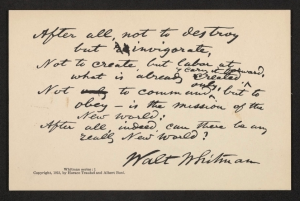 After all, not to destroy
but invigorate,
Not to create but labor at
carry it onward,
what is already created
only,
Not only to command, but to
obey – is the mission of the
New World:
After all, indeed, can there be any
really New World?
Walt Whitman
Copyright, 1912, by Horace Traubel and Albert Boni.